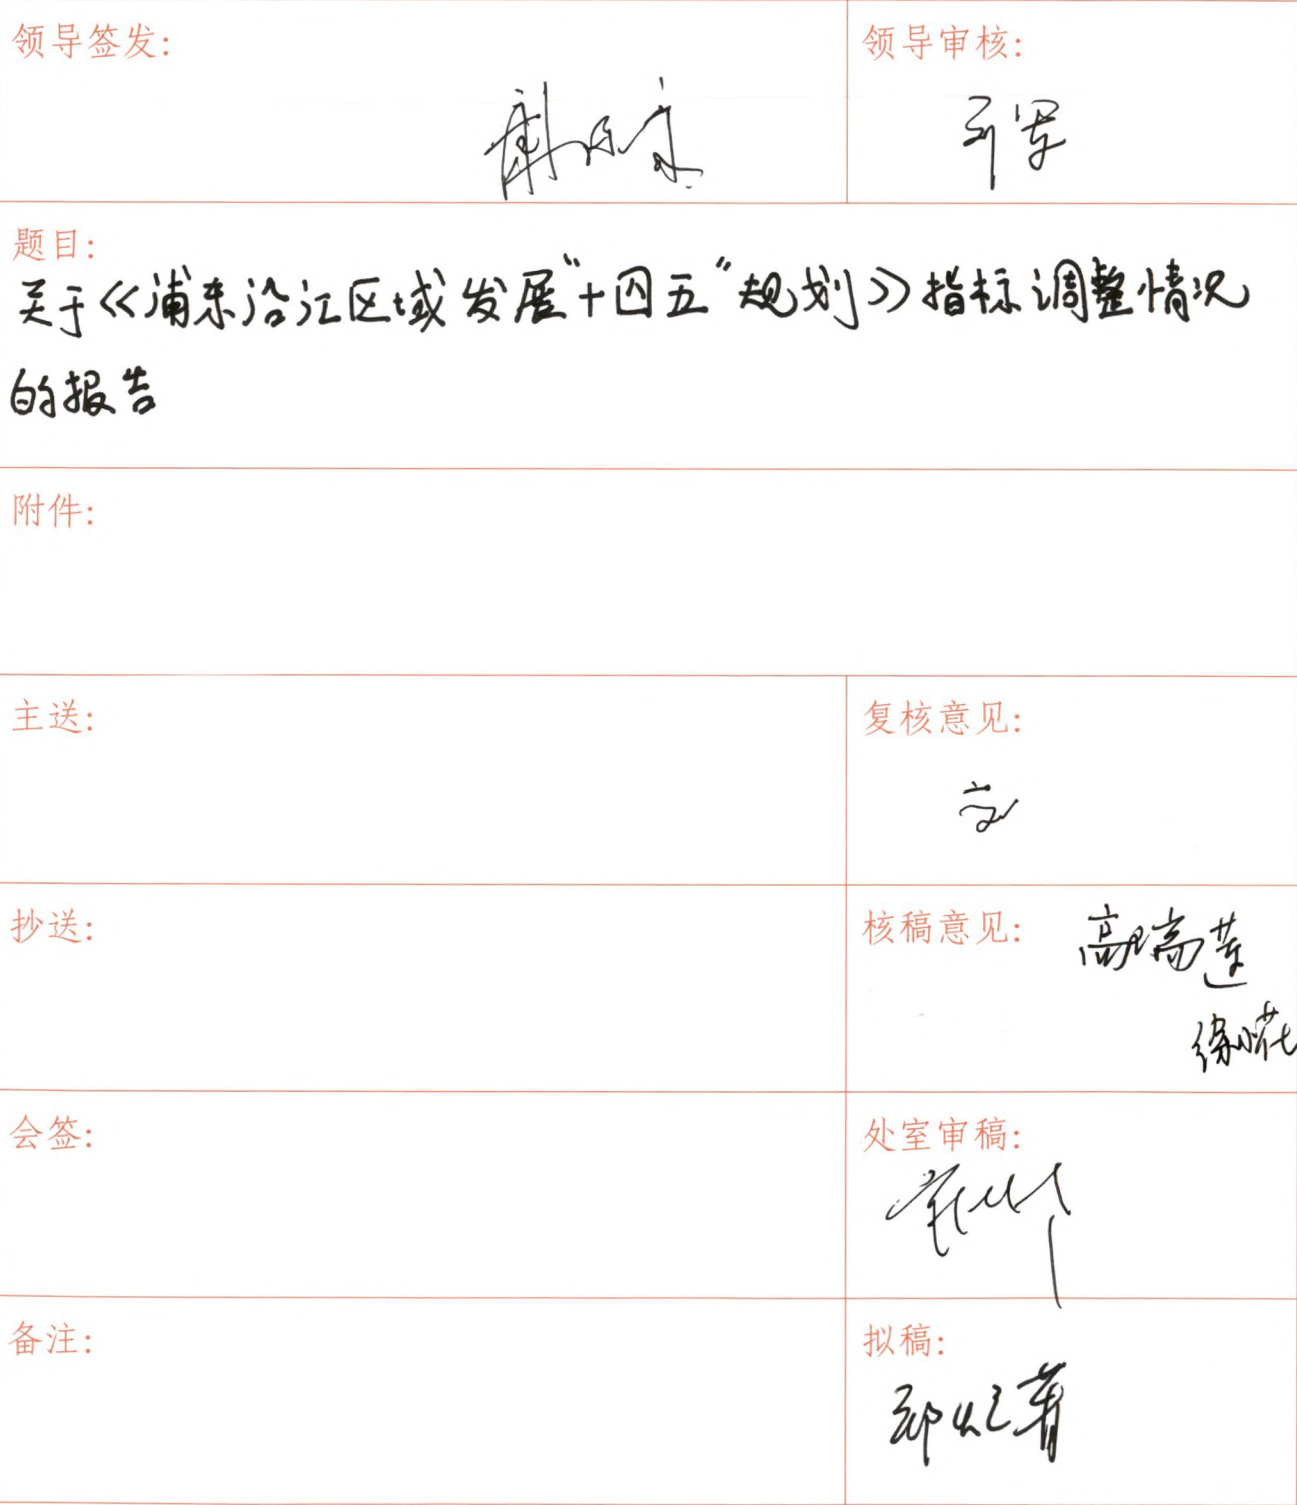 领导签发:
领导审核:
题目:
关于《浦东沿江区域发展"十四五"规划》指标调整情况
的报告
附件:
主送:
复核意见:
抄送:
核稿意见:
高瑞莲
会签:
处室审稿:
备注:
拟稿: